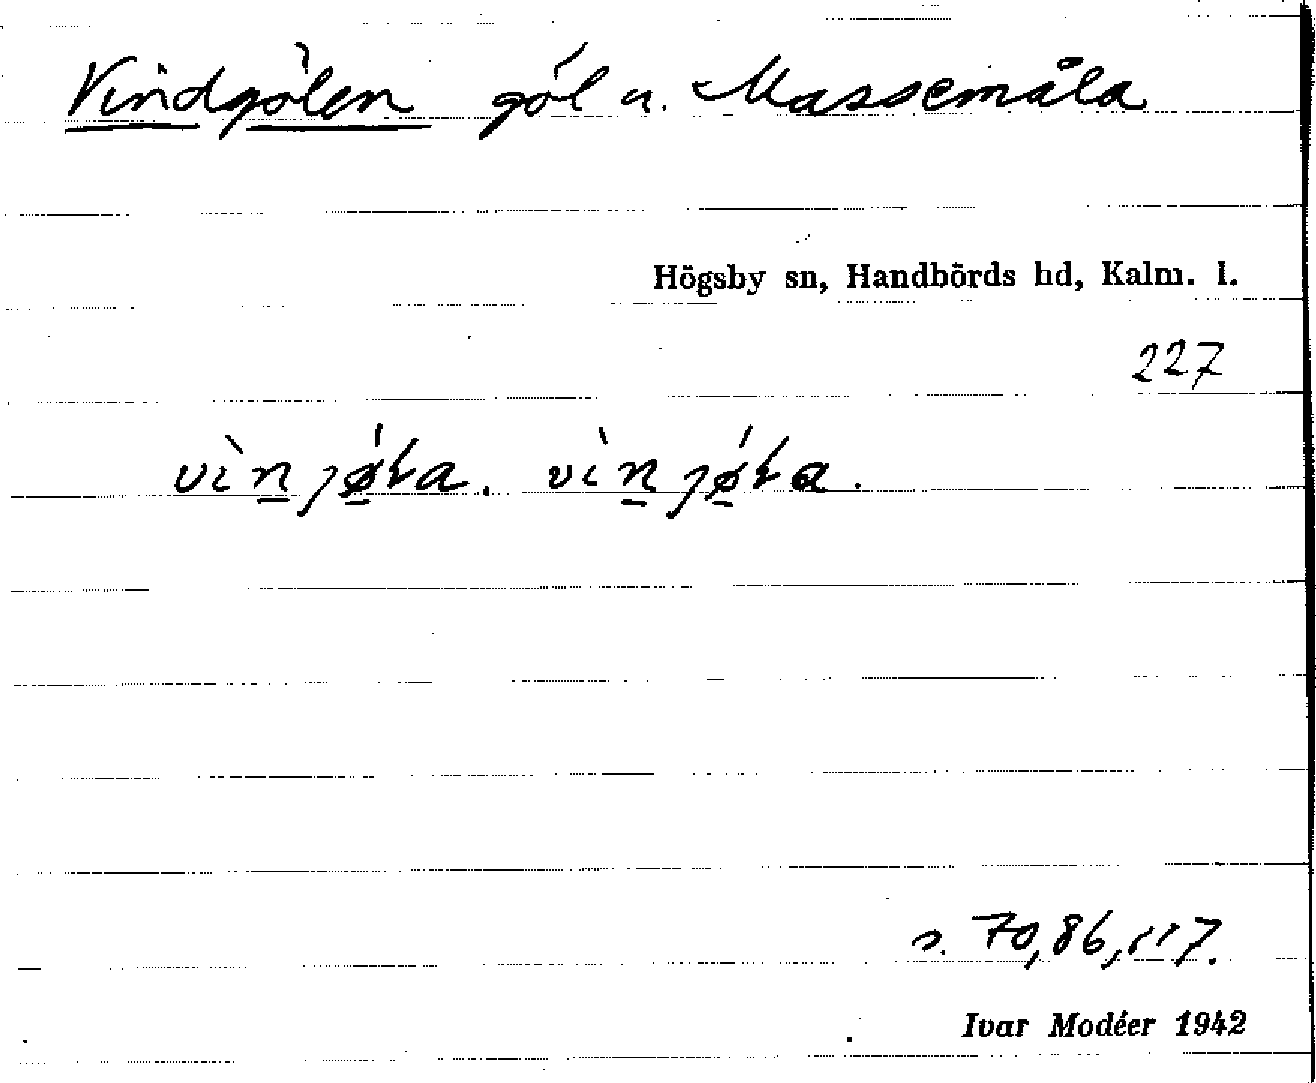 Vindgölen göl u. Massemåla
Högsby sn, Handbörds hd, Kalm. l.
227
vìn̲jǿ̲ta. vìn̲jǿ̲ta.
s. 70, 86, 117.
Ivar Modéer 1942